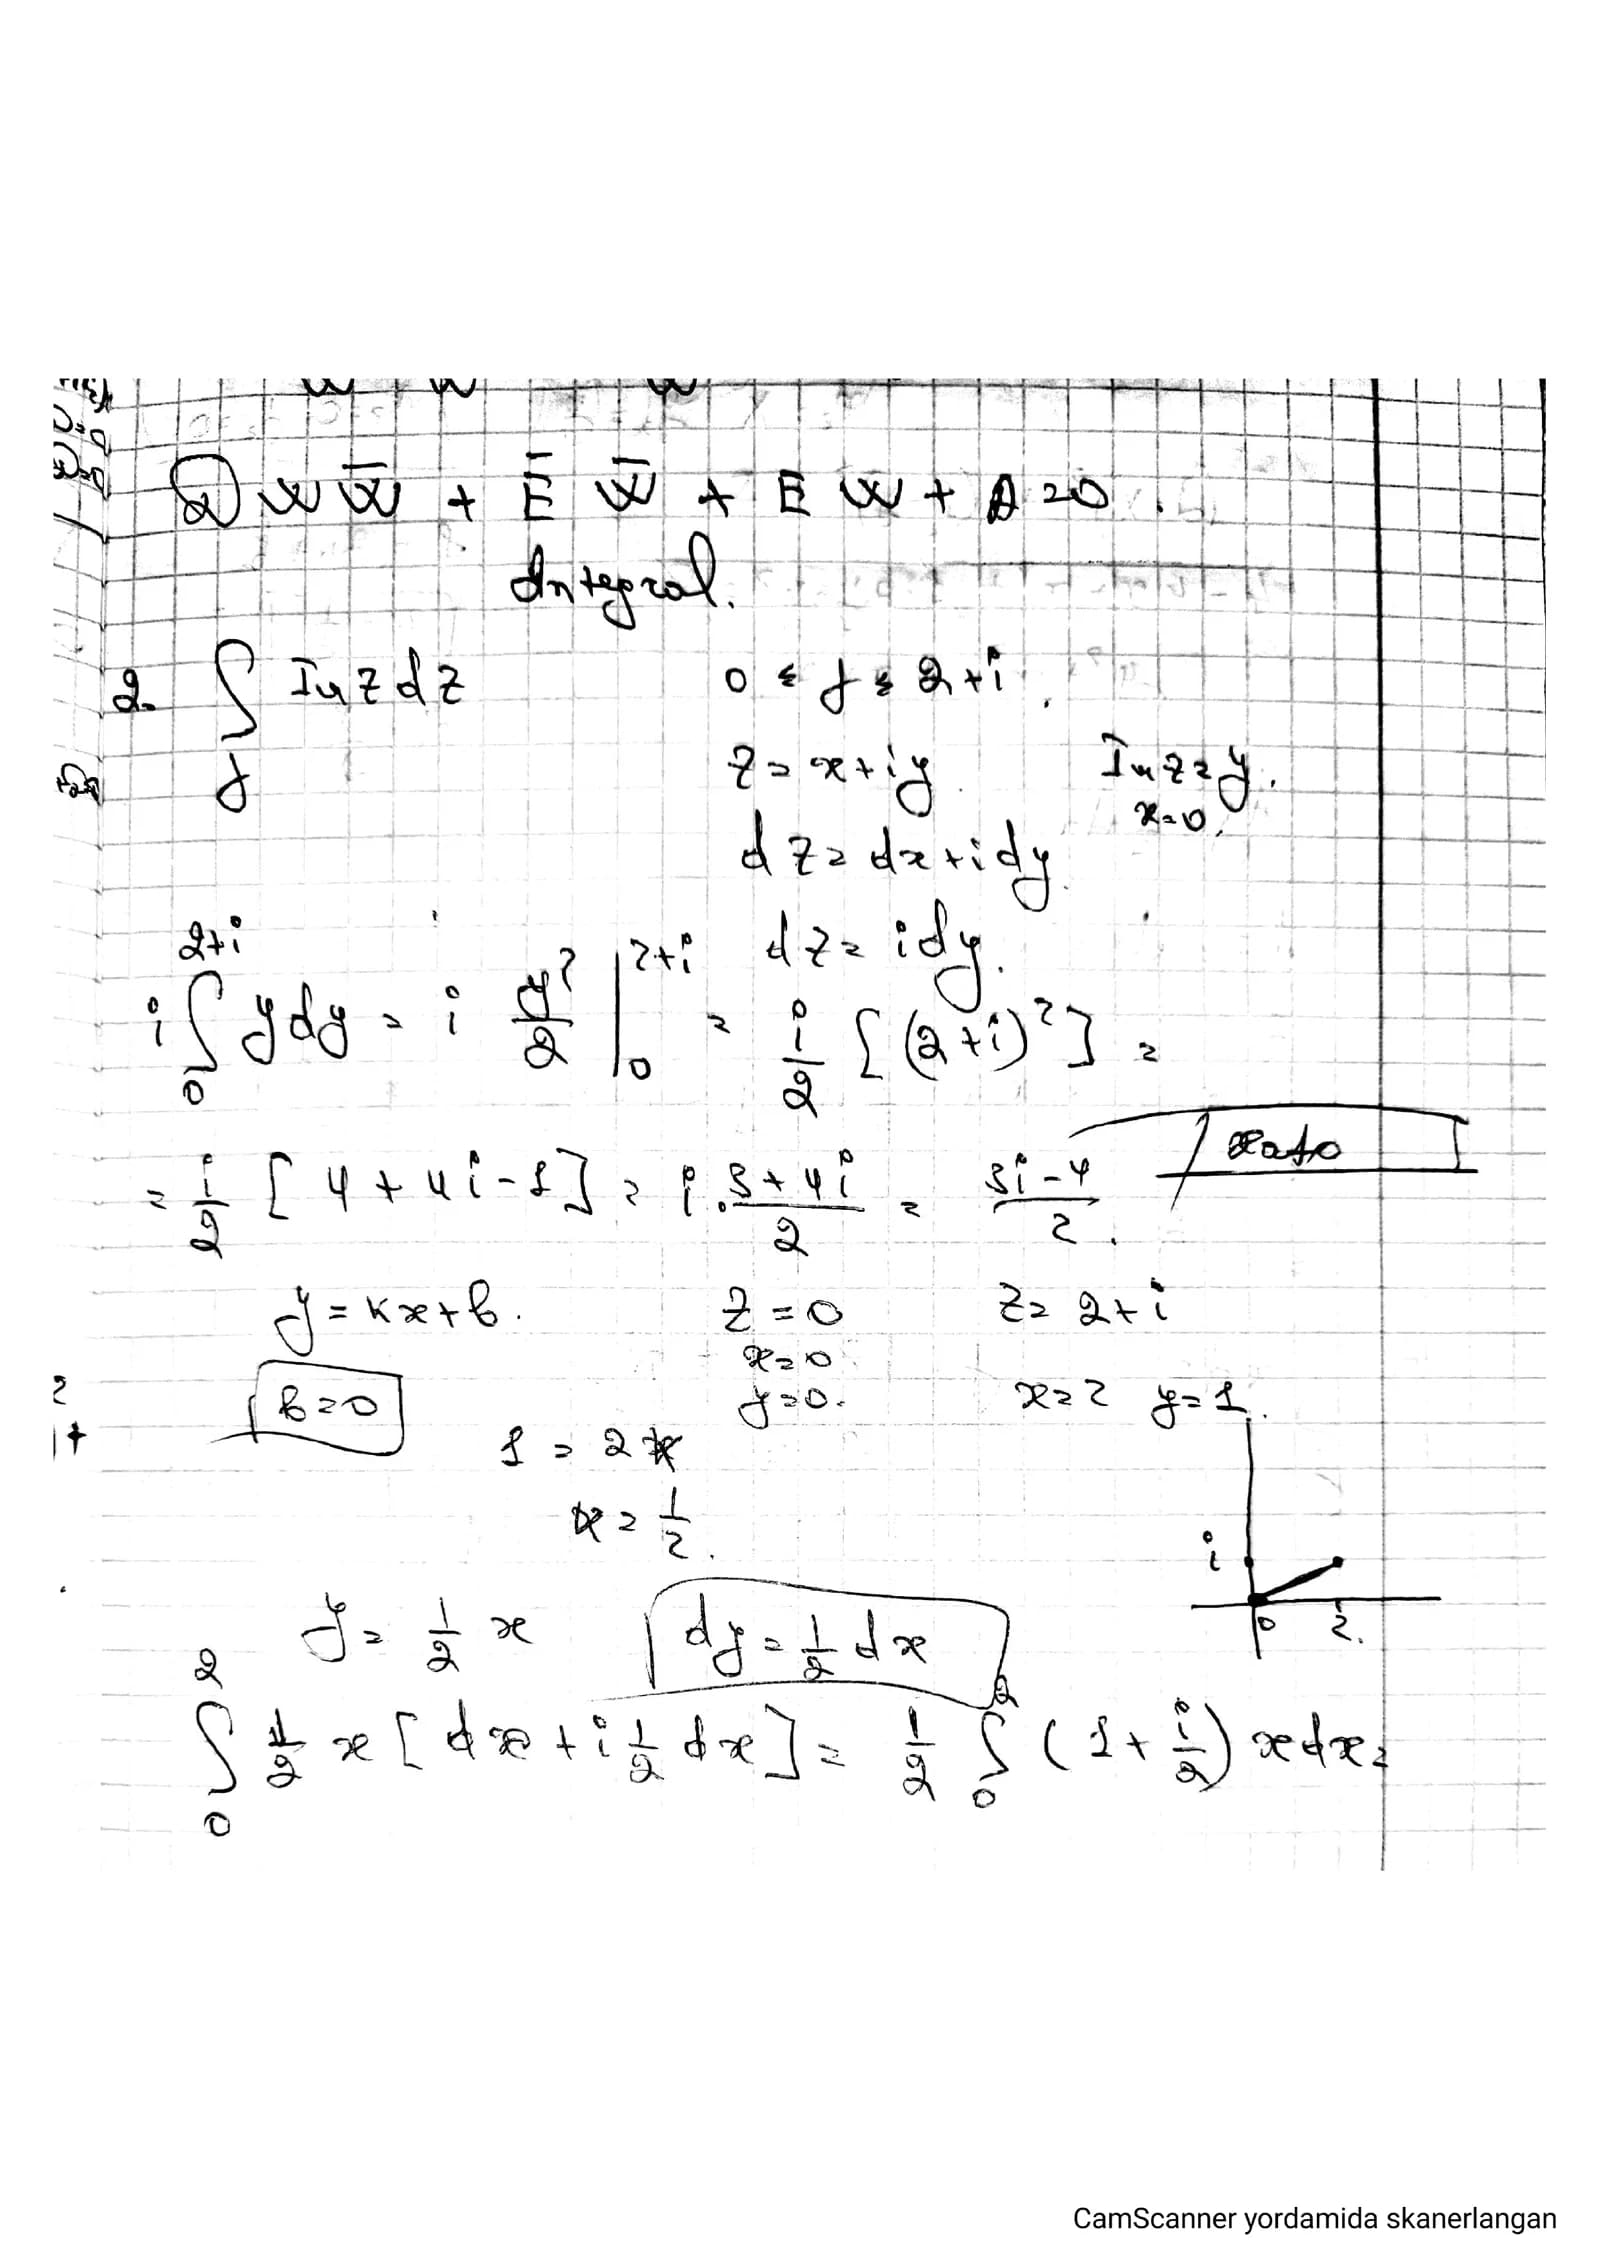 D W W̄ + Ē W̄ + E W + A = 0.
Integral.
2. ∫_γ Im z dz 0 ≤ γ ≤ 2+i.
z = x+iy Im z = y.
x=0.
dz = dx+idy
dz = idy.
i ∫_0^{2+i} ydy = i y²/2 |_0^{2+i} = i/2 [(2+i)²] =
= i/2 [4+4i-1] = i · (3+4i)/2 = (3i-4)/2. xato
y = kx+b. z=0 z = 2+i
x=0
b=0 y=0. x=2 y=1.
1 = 2k
k = 1/2.
i
0 2.
y = 1/2 x dy = 1/2 dx
∫_0^2 1/2 x [dx + i 1/2 dx] = 1/2 ∫_0^2 (1 + i/2) xdx =
CamScanner yordamida skanerlangan